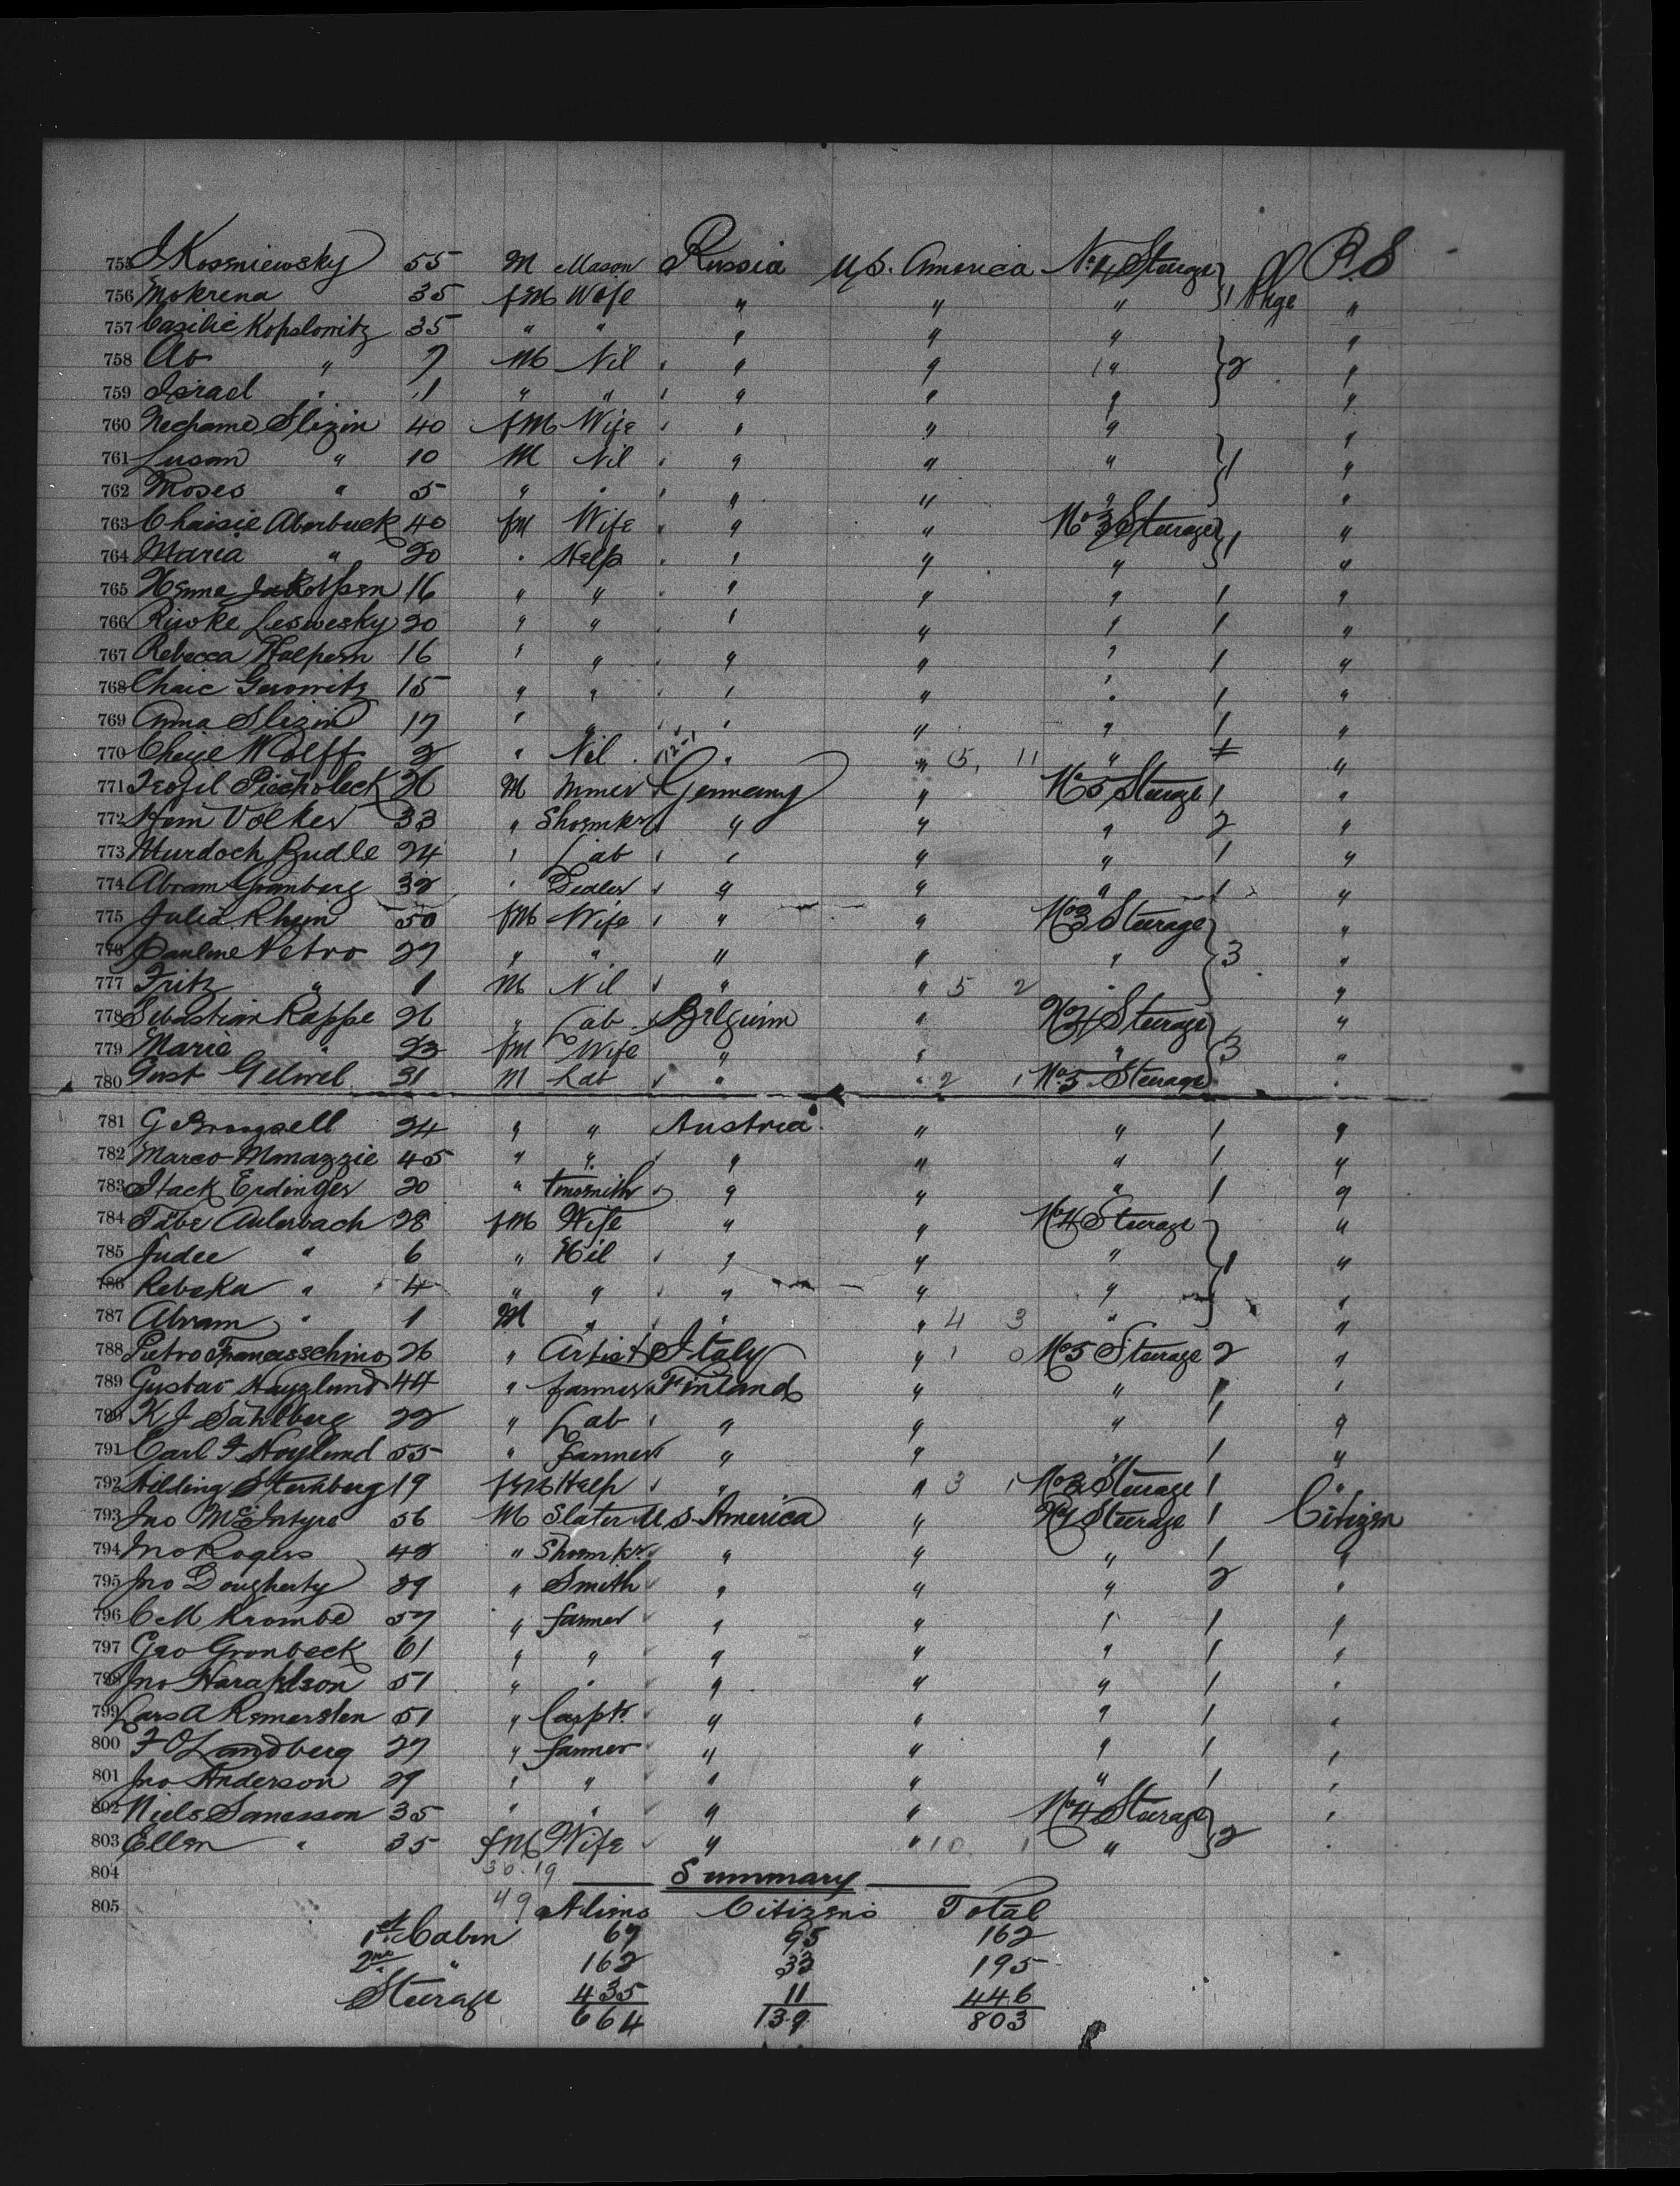 755 J Kossniewsky 55 M Mason Russia U.S. America No 4 Steerage } 1 Pkge P.S
756 Mokrena 35 fM Wife " " " "
757 Casilie Kopslowitz 35 " " " " " "
758 Ab " 7 M Nil " " " } 2 "
759 Israel " 1 " " " " " "
760 Nechame Slizin 40 fM Wife " " " "
761 Lusom " 10 M Nil " " " } 1 "
762 Moses " 5 " " " " " "
763 Chaisie Aberbuck 40 fM Wife " " No 3 Steerage "
764 Maria " 20 " Help " " " } 1 "
765 Henne Jakobsen 16 " " " " " 1 "
766 Riwke Leswesky 20 " " " " " 1 "
767 Rebecca Halpern 16 " " " " " 1 "
768 Chaie Gerowitz 15 " " " " " 1 "
769 Anna Slizin 17 " " " " " 1 "
770 Cheije Wolff 2 " Nil " " 15, 11 " "
771 Teofil Piecholeck 26 M Miner Germany " No 5 Steerage 1 "
772 Hem Volker 33 " Shoemkr " " " 2 "
773 Murdoch Budle 24 " Lab " " " 1 "
774 Abram Granberg 32 " Pedler " " " 1 "
775 Julia Rhein 50 fM Wife " " No 3 Steerage "
776 Pauline Netro 27 " " " " " } 3 "
777 Fritz " 1 M Nil " " 5 2 " "
778 Sebastian Rappe 26 " Lab Belguim " No 4 Steerage "
779 Marie " 23 fM Wife " " " } 3 "
780 Gust Gelwel 31 M Lab " " 2 1 No 5 Steerage "
781 G 24 " " Austria " " 1 "
782 Marco Mmazzie 45 " " " " " 1 "
783 Itack Erdinger 20 " tinsmith " " " 1 "
784 Tabe Auerbach 28 fM Wife " " No 4 Steerage "
785 Judee " 6 " Nil " " " } 1 "
786 Rebeka " 4 " " " " " "
787 Abram " 1 M " " " 4 3 " "
788 Pietro Francisschino 26 " Artist Italy " 1 0 No 5 Steerage 2 "
789 Gustav Hayglund 44 " farmer Finland " " 1 "
790 K J Sahlberg 22 " Lab " " " 1 "
791 Carl F Hoylund 55 " Farmer " " " 1 "
792 Hilding Sternberg 19 fM Help " " 3 1 No 3 Steerage 1 "
793 Jno McEntyre 56 M Slater U S America " No 1 Steerage 1 Citizen
794 Jno Rogers 42 " Shoemkr " " " 1 "
795 Jno Dougherty 29 " Smith " " " 2 "
796 C M Krombe 57 " farmer " " " 1 "
797 Geo Gronbeck 61 " " " " " 1 "
798 Jno Haraldson 51 " " " " " 1 "
799 Lars A Remersten 51 " Carptr " " " 1 "
800 F O Landberg 27 " farmer " " " 1 "
801 Jno Anderson 29 " " " " " 1 "
802 Niels Sanesson 35 " " " " No 4 Steerage "
803 Ellen " 35 fM Wife " " 10 1 " } 2 "
804 30.19 Summary
805 49 Aliens Citizens Total
1st Cabin 67 95 162
2nd " 162 33 195
Steerage 435 11 446
664 139 803